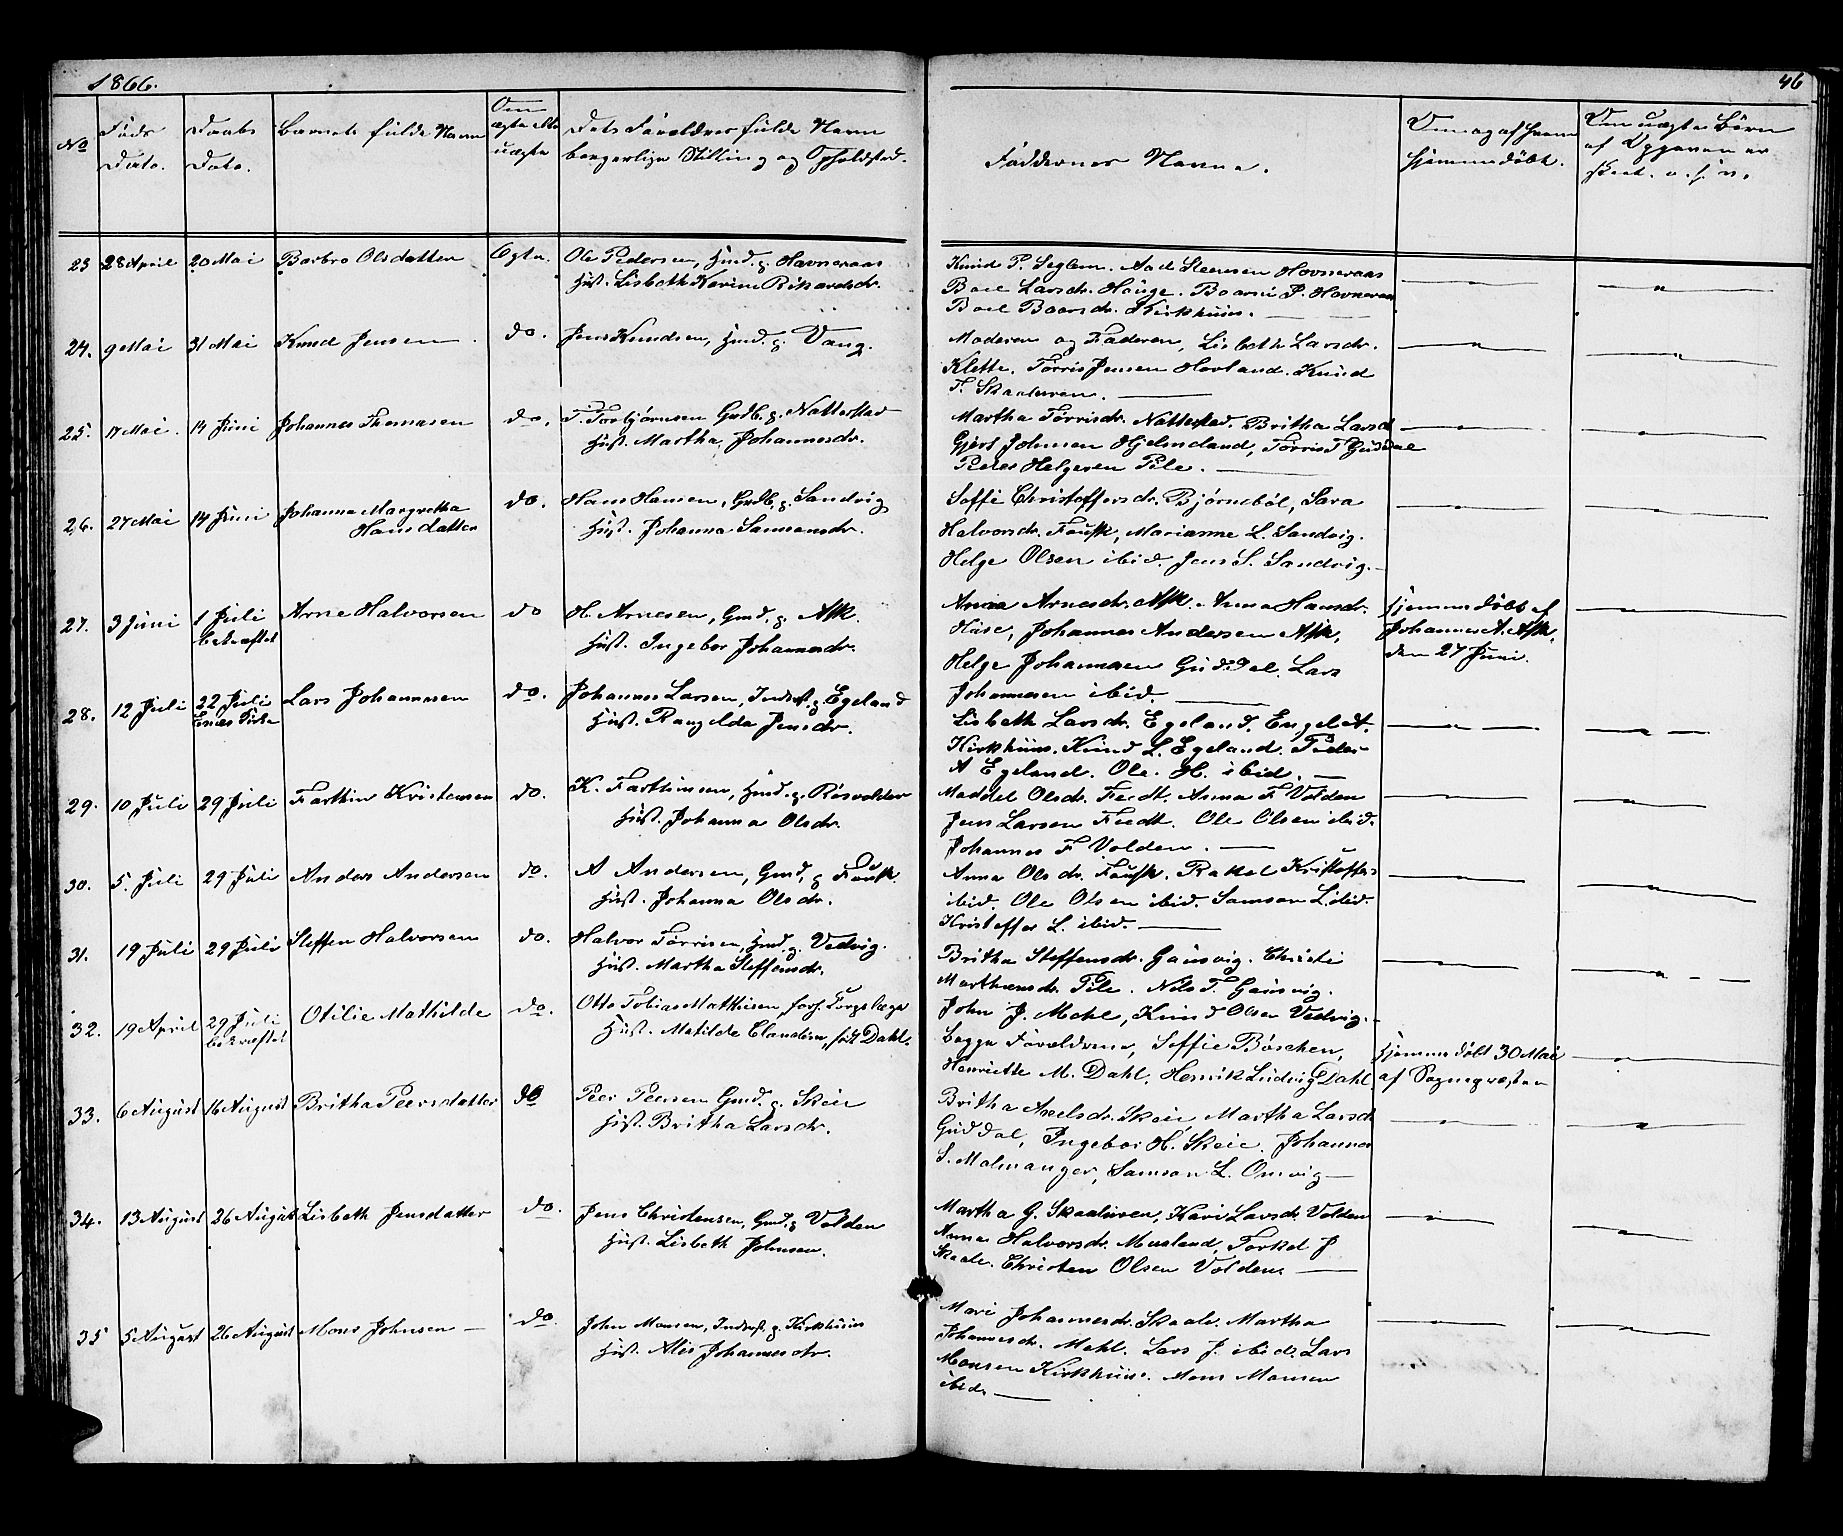 1866.
46
No
Føds
Dato.
Daabs
Dato.
Barnets fulde Navn
Om
ægte eller
uægte
Dets Forældres fulde Navn
borgerlige Stilling og Opholdsted.
Faddernes Navne.
Om og af hvem
hjemmedøbt.
Om uægte Børn
af Opgaven er
skeet. o. s. v.
23 28 April 20 Mai Barbro Olsdatter Egte. Ole Pedersen, Hmd. g. Havneraas
Hust. Lisbeth Karine Rikardsdr.
Knud P. Seglem. Aad Steensen Hovneraas
Boel Larsdr. Hauge. Baarn P. Havneraas
Boel Baarsdr. Kirkhuus.
24. 9 Mai 31 Mai Knud Jensen do. Jens Knudsen, Hmd. g. Vang.
Moderen og Faderen, Lisbeth Larsdr.
Klette. Tørris Jensen Hovland. Knud
T. Skaaluren.
25. 17 Mai. 14 Juni Johannes Thomasen do. T. Torbjørnsen Grdb. g. Natterstad
Hust. Martha Johannesdr.
Martha Tørrisdr. Natterstad. Britha Larsd
Gjert Johnsen Hjelmeland, Tørris T Guddal
Peder Helgesen Pile.
26. 27 Mai 14 Juni Johanna Margretha
Hansdatter
do. Hans Hansen, Grdb. g. Sandvig
Hust. Johanna Samsonsdr.
Soffi Christoffersdr. Bjørnebøl, Sara
Halvorsdr. Fausk, Marianne L. Sandvig.
Helge Olsen ibid. Jens S. Sandvig.
27. 3 Juni 1 Juli
bekræftet
Arne Halvorsen do H. Arnesen, Gmd. g. Ask.
Hust. Ingebor Johannesdr.
Anna Arnesdr. Ask. Anna Hansdr.
Huse, Johannes Andersen Ask,
Helge Johannesen Guddal. Lars
Johannesen ibid.
hjemmedøbt af
Johannes A. Ask.
den 27 Juni.
28. 12 Juli 22 Juli
Lars Johannesen do. Johannes Larsen, Inderst. g. Egeland
Hust. Rangelda Jensdr.
Lisbeth Larsdr. Egeland. Engel A.
Kirkhuus. Knud L. Egeland. Peder
A Egeland. Ole. H. ibid.
29. 10 Juli 29 Juli Farthin Kristensen do. K. Farthinsen, Hmd. g. Røsvolden
Hust. Johanna Olsdr.
Maddel Olsdr. Feedt. Anna F Volden
Jens Larsen Feedt. Ole Olsen ibid.
Johannes F Volden.
30. 5. Juli 29 Juli Anders Andersen do. A Andersen, Gmd. g Fausk.
Hust. Johanna Olsdr.
Anna Olsdr. Fausk. Rakel Kristoffers
ibid. Ole Olsen ibid. Samson L. ibid.
Kristoffer L. ibid.
31. 19 Juli 29 Juli Steffen Halvorsen do. Halvor Tørrisen, Hmd. g. Vedvig.
Hust. Martha Steffensdr.
Britha Steffensdr. Gausvig. Christi
Marthinsdr. Pile. Nils T. Gausvig.
John J. Mehl, Knud Olsen Vedvig.
32. 19 April 29 Juli
bekræftet
Otilie Mathilde do. Otto Tobias Mathisen,
Hust. Matilde Claudine, født Dahl.
begge Forældrene, Soffie Bøschen,
Henriette M. Dahl. Henrik Ludvig Dahl.
Hjemmedøbt 30 Mai
af Sognepræsten
33. 6 August 16 August Britha Peersdatter do Peer Peersen Gmd. g. Skeie
Hust. Britha Larsdr.
Britha Axelsdr. Skeie, Martha Larsdr
Guddal, Ingebor H. Skeie. Johannes
S. Malmanger, Samson L. Omvig
34. 13 August 26 August Lisbeth Jensdatter do. Jens Christensen, Gmd. g Volden
Hust. Lisbeth Johnsen.
Martha G. Skaaluren, Kari Larsdr. Volden
Anna Halvorsdr. Musland, Torkel J
Skaale. Christen Olsen Volden.
35 5 August 26 August Mons Johnsen do. John Monsen, Inderst. g. Kirkhuus
Hust. Alis Johannesdr.
Mari Johannesdr. Skaale. Martha
Johannesdr. Mehl. Lars J. ibid. Lars
Monsen Kirkhuus. Mons Monsen
ibid.